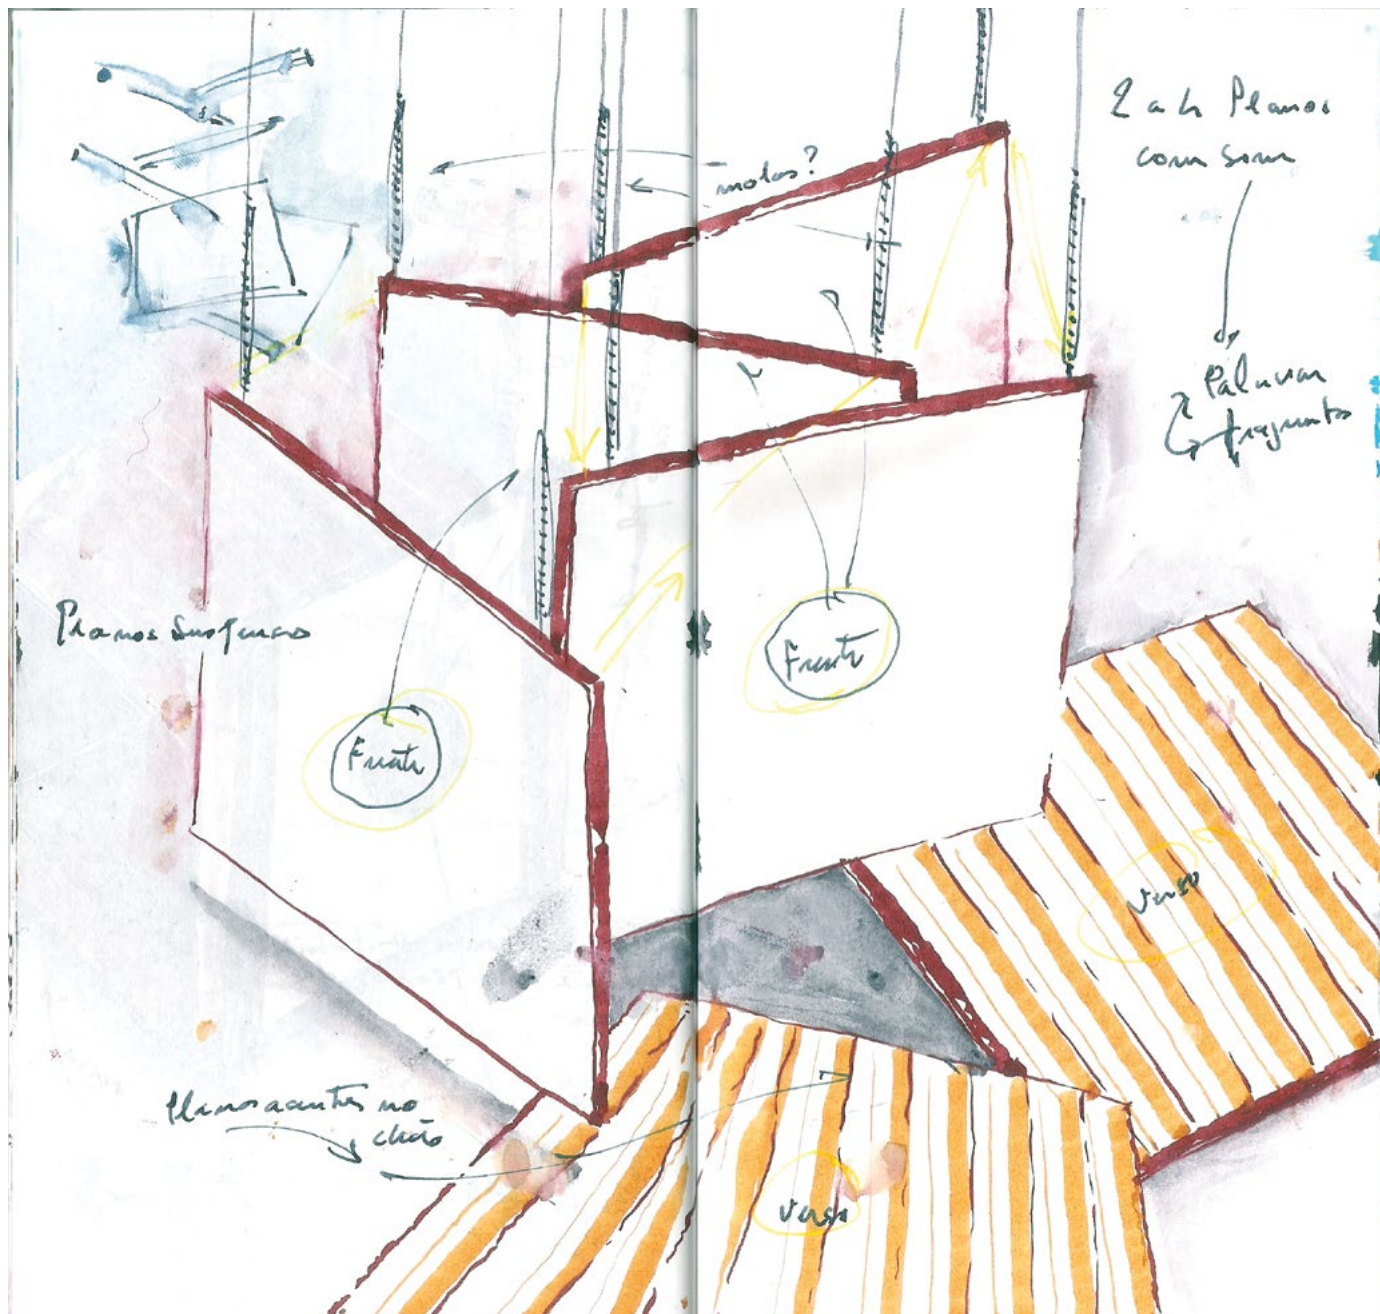 molas?
2 a 4 Planos
com som
Palavras
fragmentos
Planos suspensos
Frente
Frente
verso
Planos assentes no
chão
verso